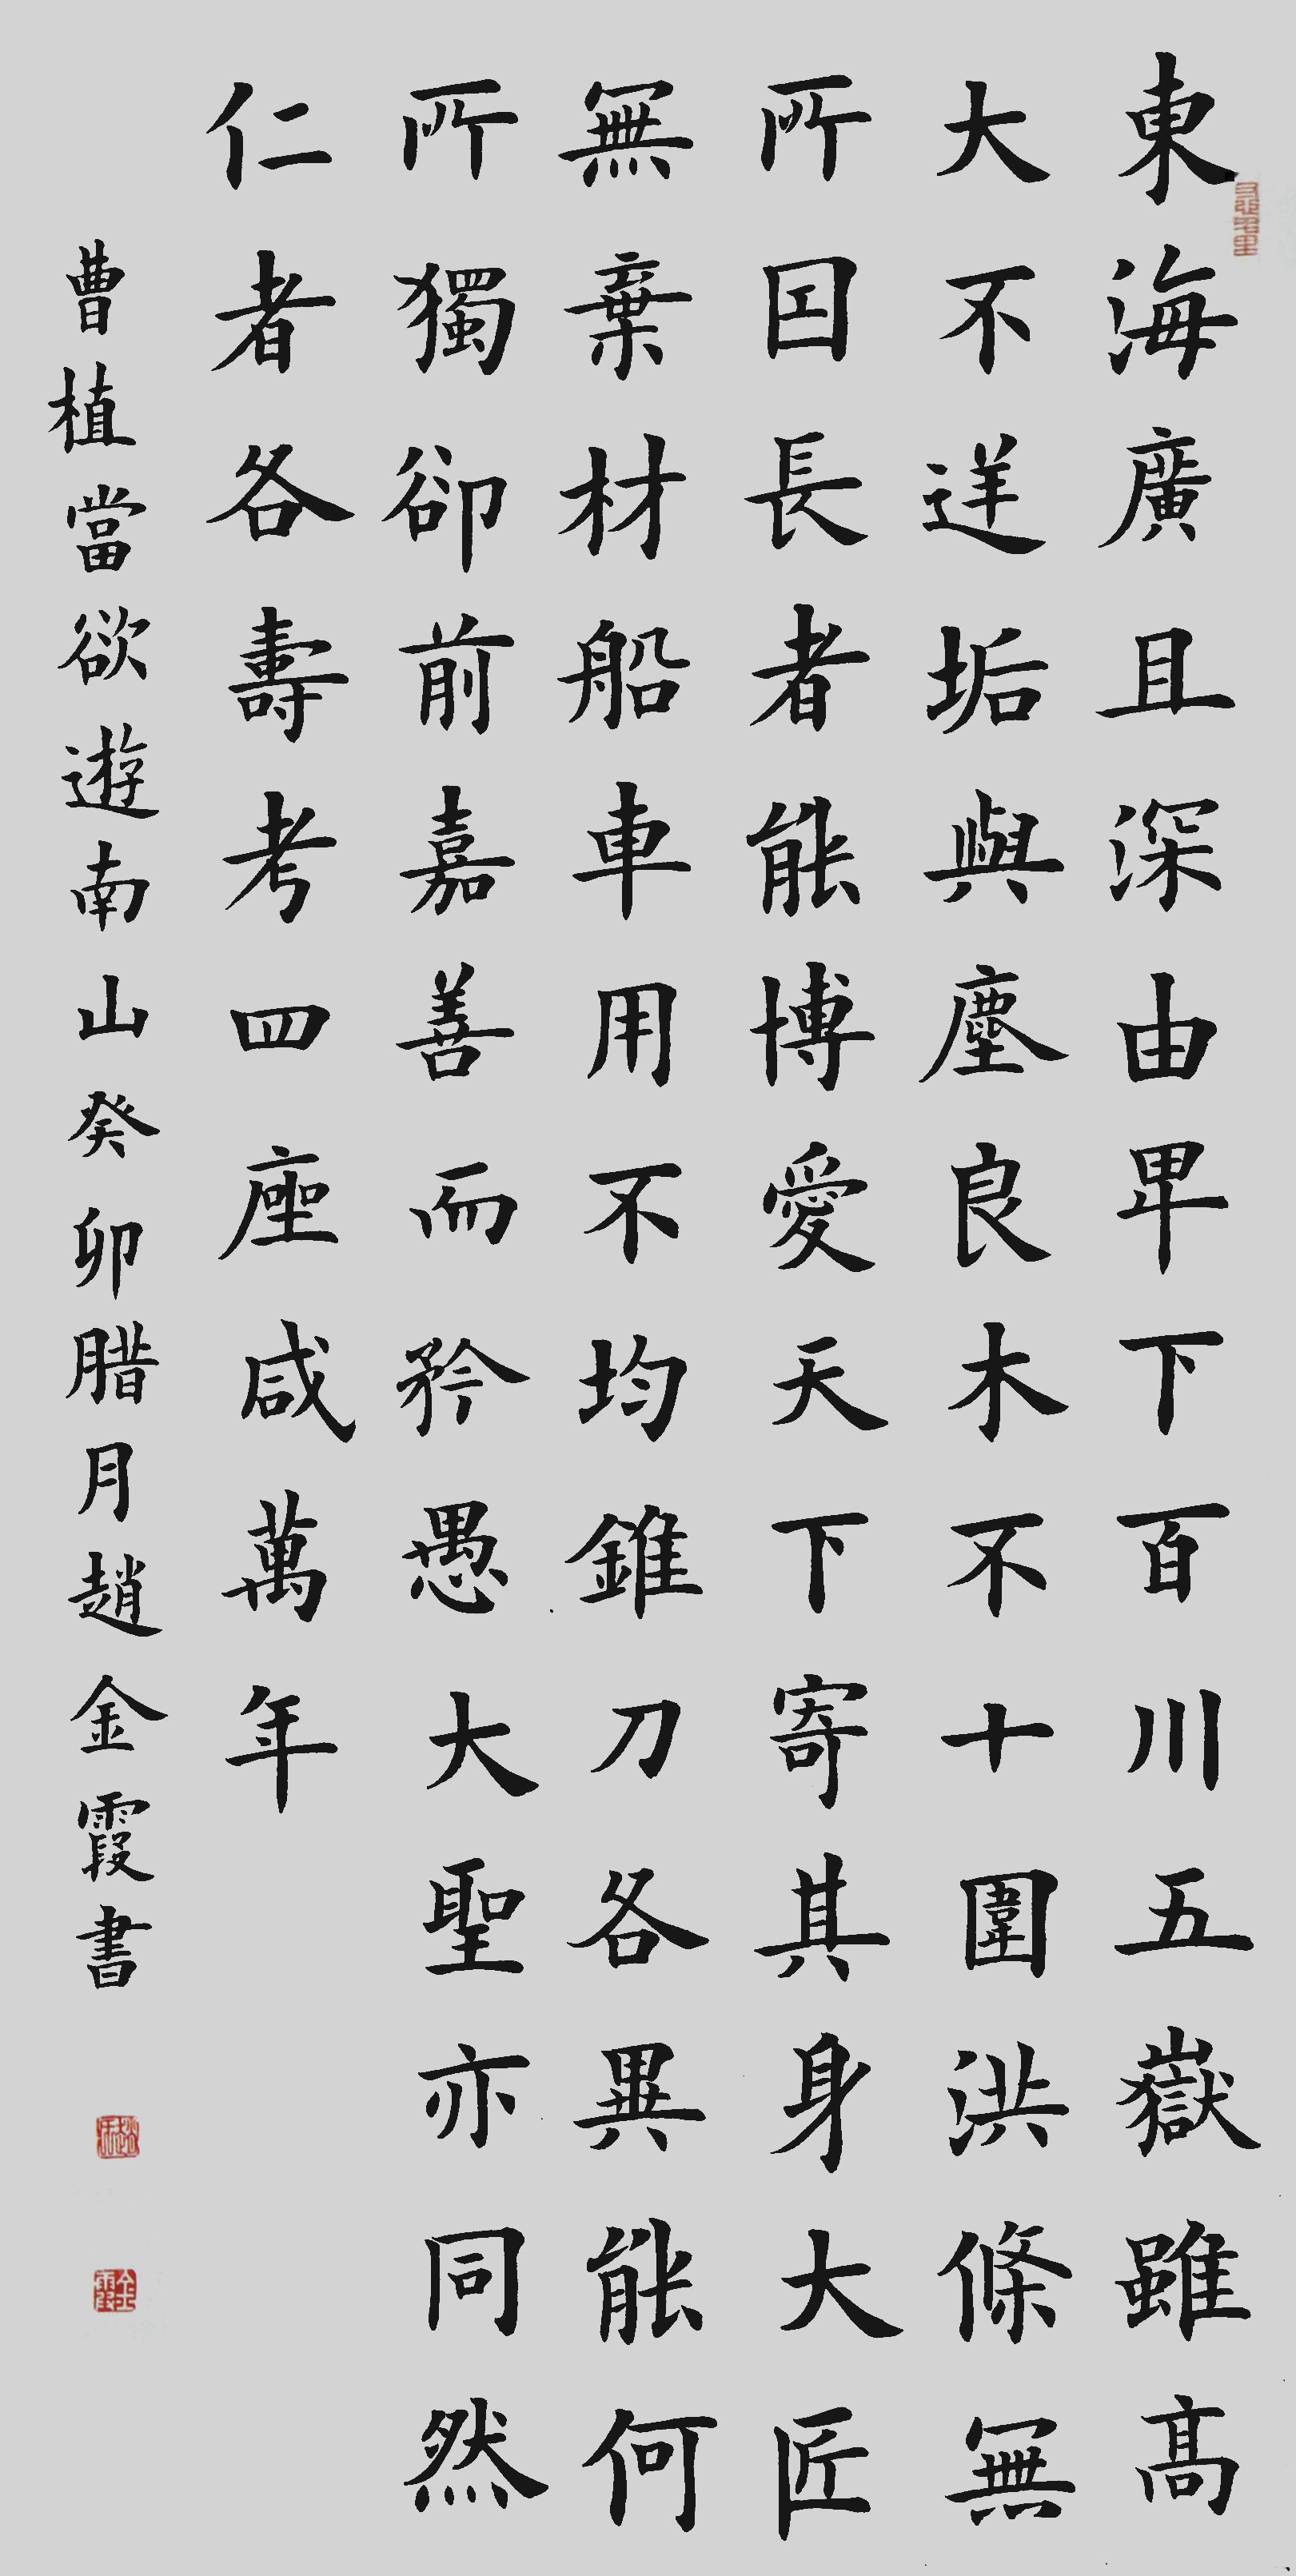 東海廣且深由卑下百川五嶽雖高
大不逆垢與塵良木不十圍洪條無
所因長者能博愛天下寄其身大匠
無棄材船車用不均錐刀各異能何
所獨卻前嘉善而矜愚大聖亦同然
仁者各壽考四座咸萬年
曹植當欲遊南山癸卯腊月趙金霞書
金霞